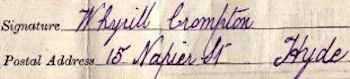 Signature Whyrill Crompton
Postal Address 15 Napier St Hyde